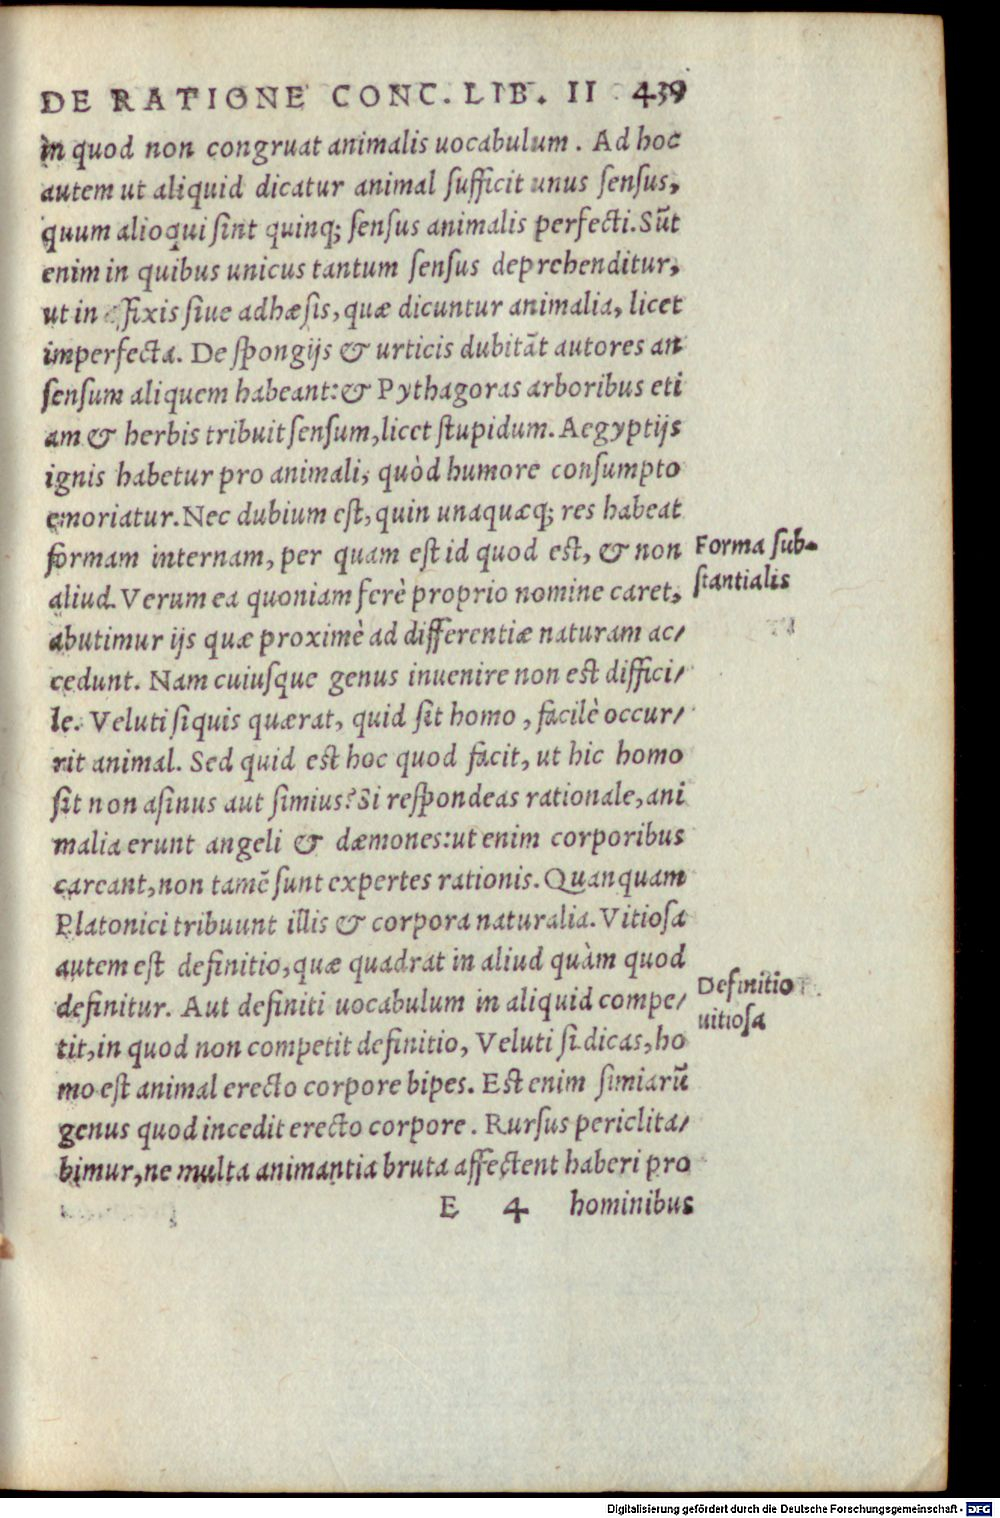 DE RATIONE CONC. LIB. II 439
in quod non congruat animalis uocabulum. Ad hoc
autem ut aliquid dicatur animal ſufficit unus ſenſus,
quum alioqui ſint quinq; ſenſus animalis perfecti. Sūt
enim in quibus unicus tantum ſenſus deprehenditur,
ut in affixis ſiue adhæſis, quæ dicuntur animalia, licet
imperfecta. De ſpongijs & urticis dubitāt autores an
ſenſum aliquem habeant: & Pythagoras arboribus eti
am & herbis tribuit ſenſum, licet ſtupidum. Aegyptijs
ignis habetur pro animali, quòd humore conſumpto
emoriatur. Nec dubium eſt, quin unaquæq; res habeat
formam internam, per quam eſt id quod eſt, & non
aliud. Verum ea quoniam ferè proprio nomine caret,
abutimur ijs quæ proximè ad differentiæ naturam ac/
cedunt. Nam cuiuſque genus inuenire non eſt diffici/
le. Veluti ſi quis quærat, quid ſit homo, facilè occur/
rit animal. Sed quid eſt hoc quod facit, ut hic homo
ſit non aſinus aut ſimius? Si reſpondeas rationale, ani
malia erunt angeli & dæmones: ut enim corporibus
careant, non tamē ſunt expertes rationis. Quanquam
Platonici tribuunt illis & corpora naturalia. Vitioſa
autem eſt definitio, quæ quadrat in aliud quàm quod
definitur. Aut definiti uocabulum in aliquid compe/
tit, in quod non competit definitio, Veluti ſi dicas, ho
mo eſt animal erecto corpore bipes. Eſt enim ſimiarū
genus quod incedit erecto corpore. Rurſus periclita/
bimur, ne multa animantia bruta affectent haberi pro
E 4 hominibus
Forma ſub-
ſtantialis
Definitio
uitioſa
Digitalisierung gefördert durch die Deutsche Forschungsgemeinschaft - DFG